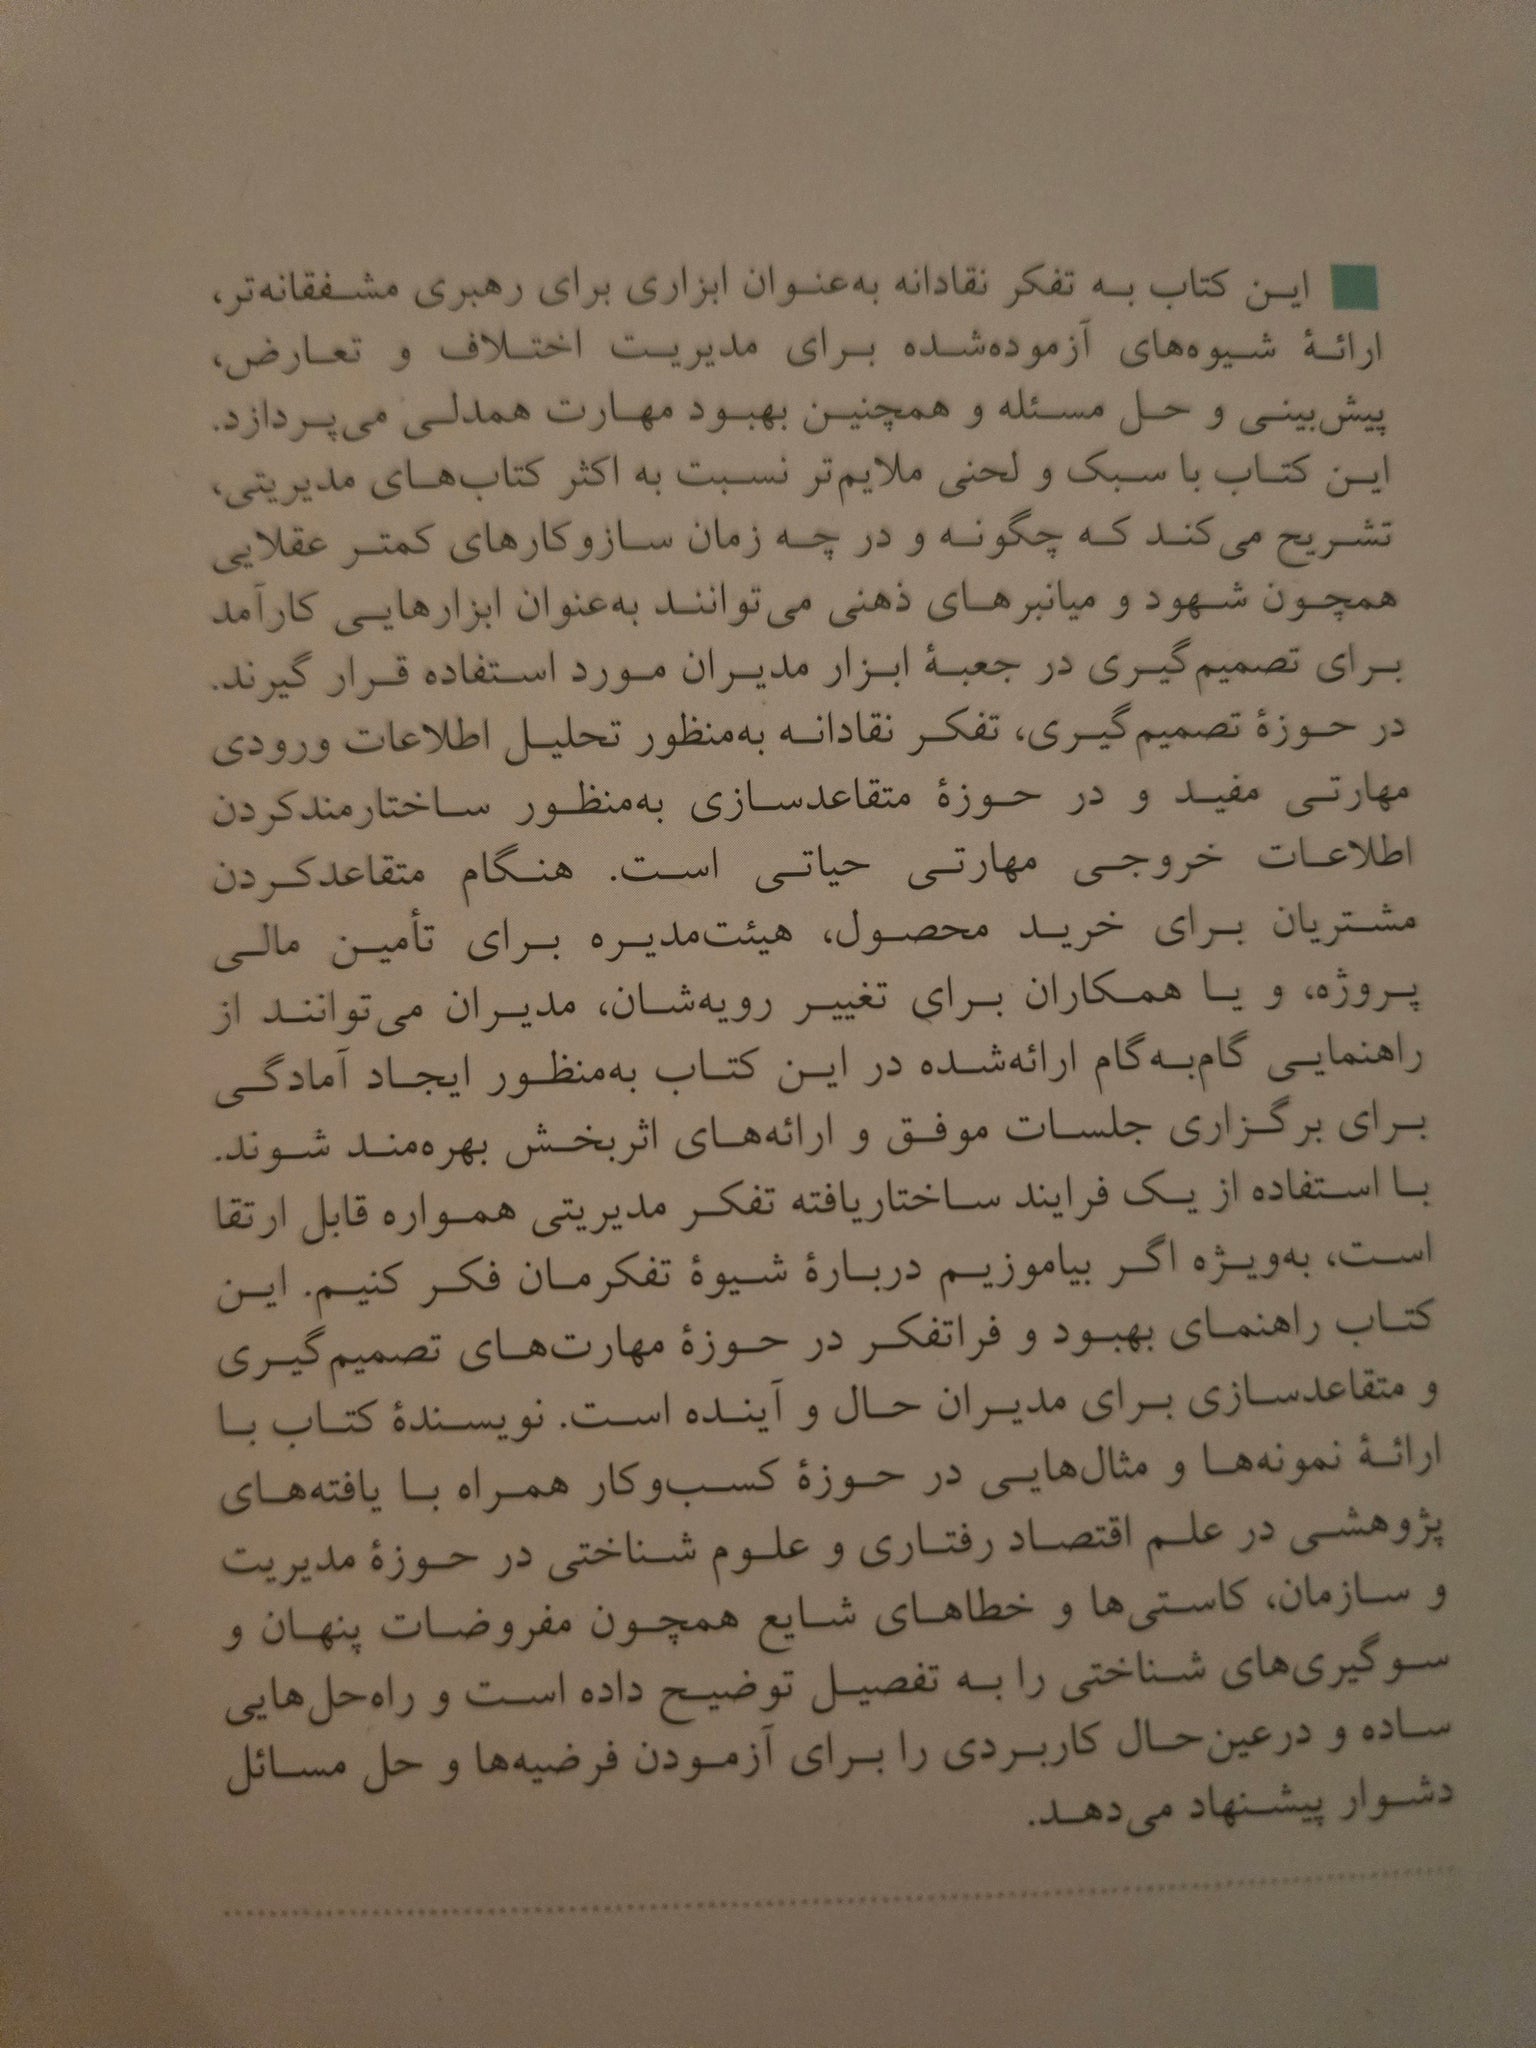 این کتاب به تفکر نقادانه به‌عنوان ابزاری برای رهبری مشفقانه‌تر،
ارائهٔ شیوه‌های آزموده‌شده برای مدیریت اختلاف و تعارض،
پیش‌بینی و حل مسئله و همچنین بهبود مهارت همدلی می‌پردازد.
این کتاب با سبک و لحنی ملایم‌تر نسبت به اکثر کتاب‌های مدیریتی،
تشریح می‌کند که چگونه و در چه زمان سازوکارهای کمتر عقلایی
همچون شهود و میانبرهای ذهنی می‌توانند به‌عنوان ابزارهایی کارآمد
برای تصمیم‌گیری در جعبهٔ ابزار مدیران مورد استفاده قرار گیرند.
در حوزهٔ تصمیم‌گیری، تفکر نقادانه به‌منظور تحلیل اطلاعات ورودی
مهارتی مفید و در حوزهٔ متقاعدسازی به‌منظور ساختارمندکردن
اطلاعات خروجی مهارتی حیاتی است. هنگام متقاعدکردن
مشتریان برای خرید محصول، هیئت‌مدیره برای تأمین مالی
پروژه، و یا همکاران برای تغییر رویه‌شان، مدیران می‌توانند از
راهنمایی گام‌به‌گام ارائه‌شده در این کتاب به‌منظور ایجاد آمادگی
برای برگزاری جلسات موفق و ارائه‌های اثربخش بهره‌مند شوند.
با استفاده از یک فرایند ساختاریافته تفکر مدیریتی همواره قابل ارتقا
است، به‌ویژه اگر بیاموزیم دربارهٔ شیوهٔ تفکرمان فکر کنیم. این
کتاب راهنمای بهبود و فراتفکر در حوزهٔ مهارت‌های تصمیم‌گیری
و متقاعدسازی برای مدیران حال و آینده است. نویسندهٔ کتاب با
ارائهٔ نمونه‌ها و مثال‌هایی در حوزهٔ کسب‌وکار همراه با یافته‌های
پژوهشی در علم اقتصاد رفتاری و علوم شناختی در حوزهٔ مدیریت
و سازمان، کاستی‌ها و خطاهای شایع همچون مفروضات پنهان و
سوگیری‌های شناختی را به تفصیل توضیح داده است و راه‌حل‌هایی
ساده و درعین‌حال کاربردی را برای آزمودن فرضیه‌ها و حل مسائل
دشوار پیشنهاد می‌دهد.